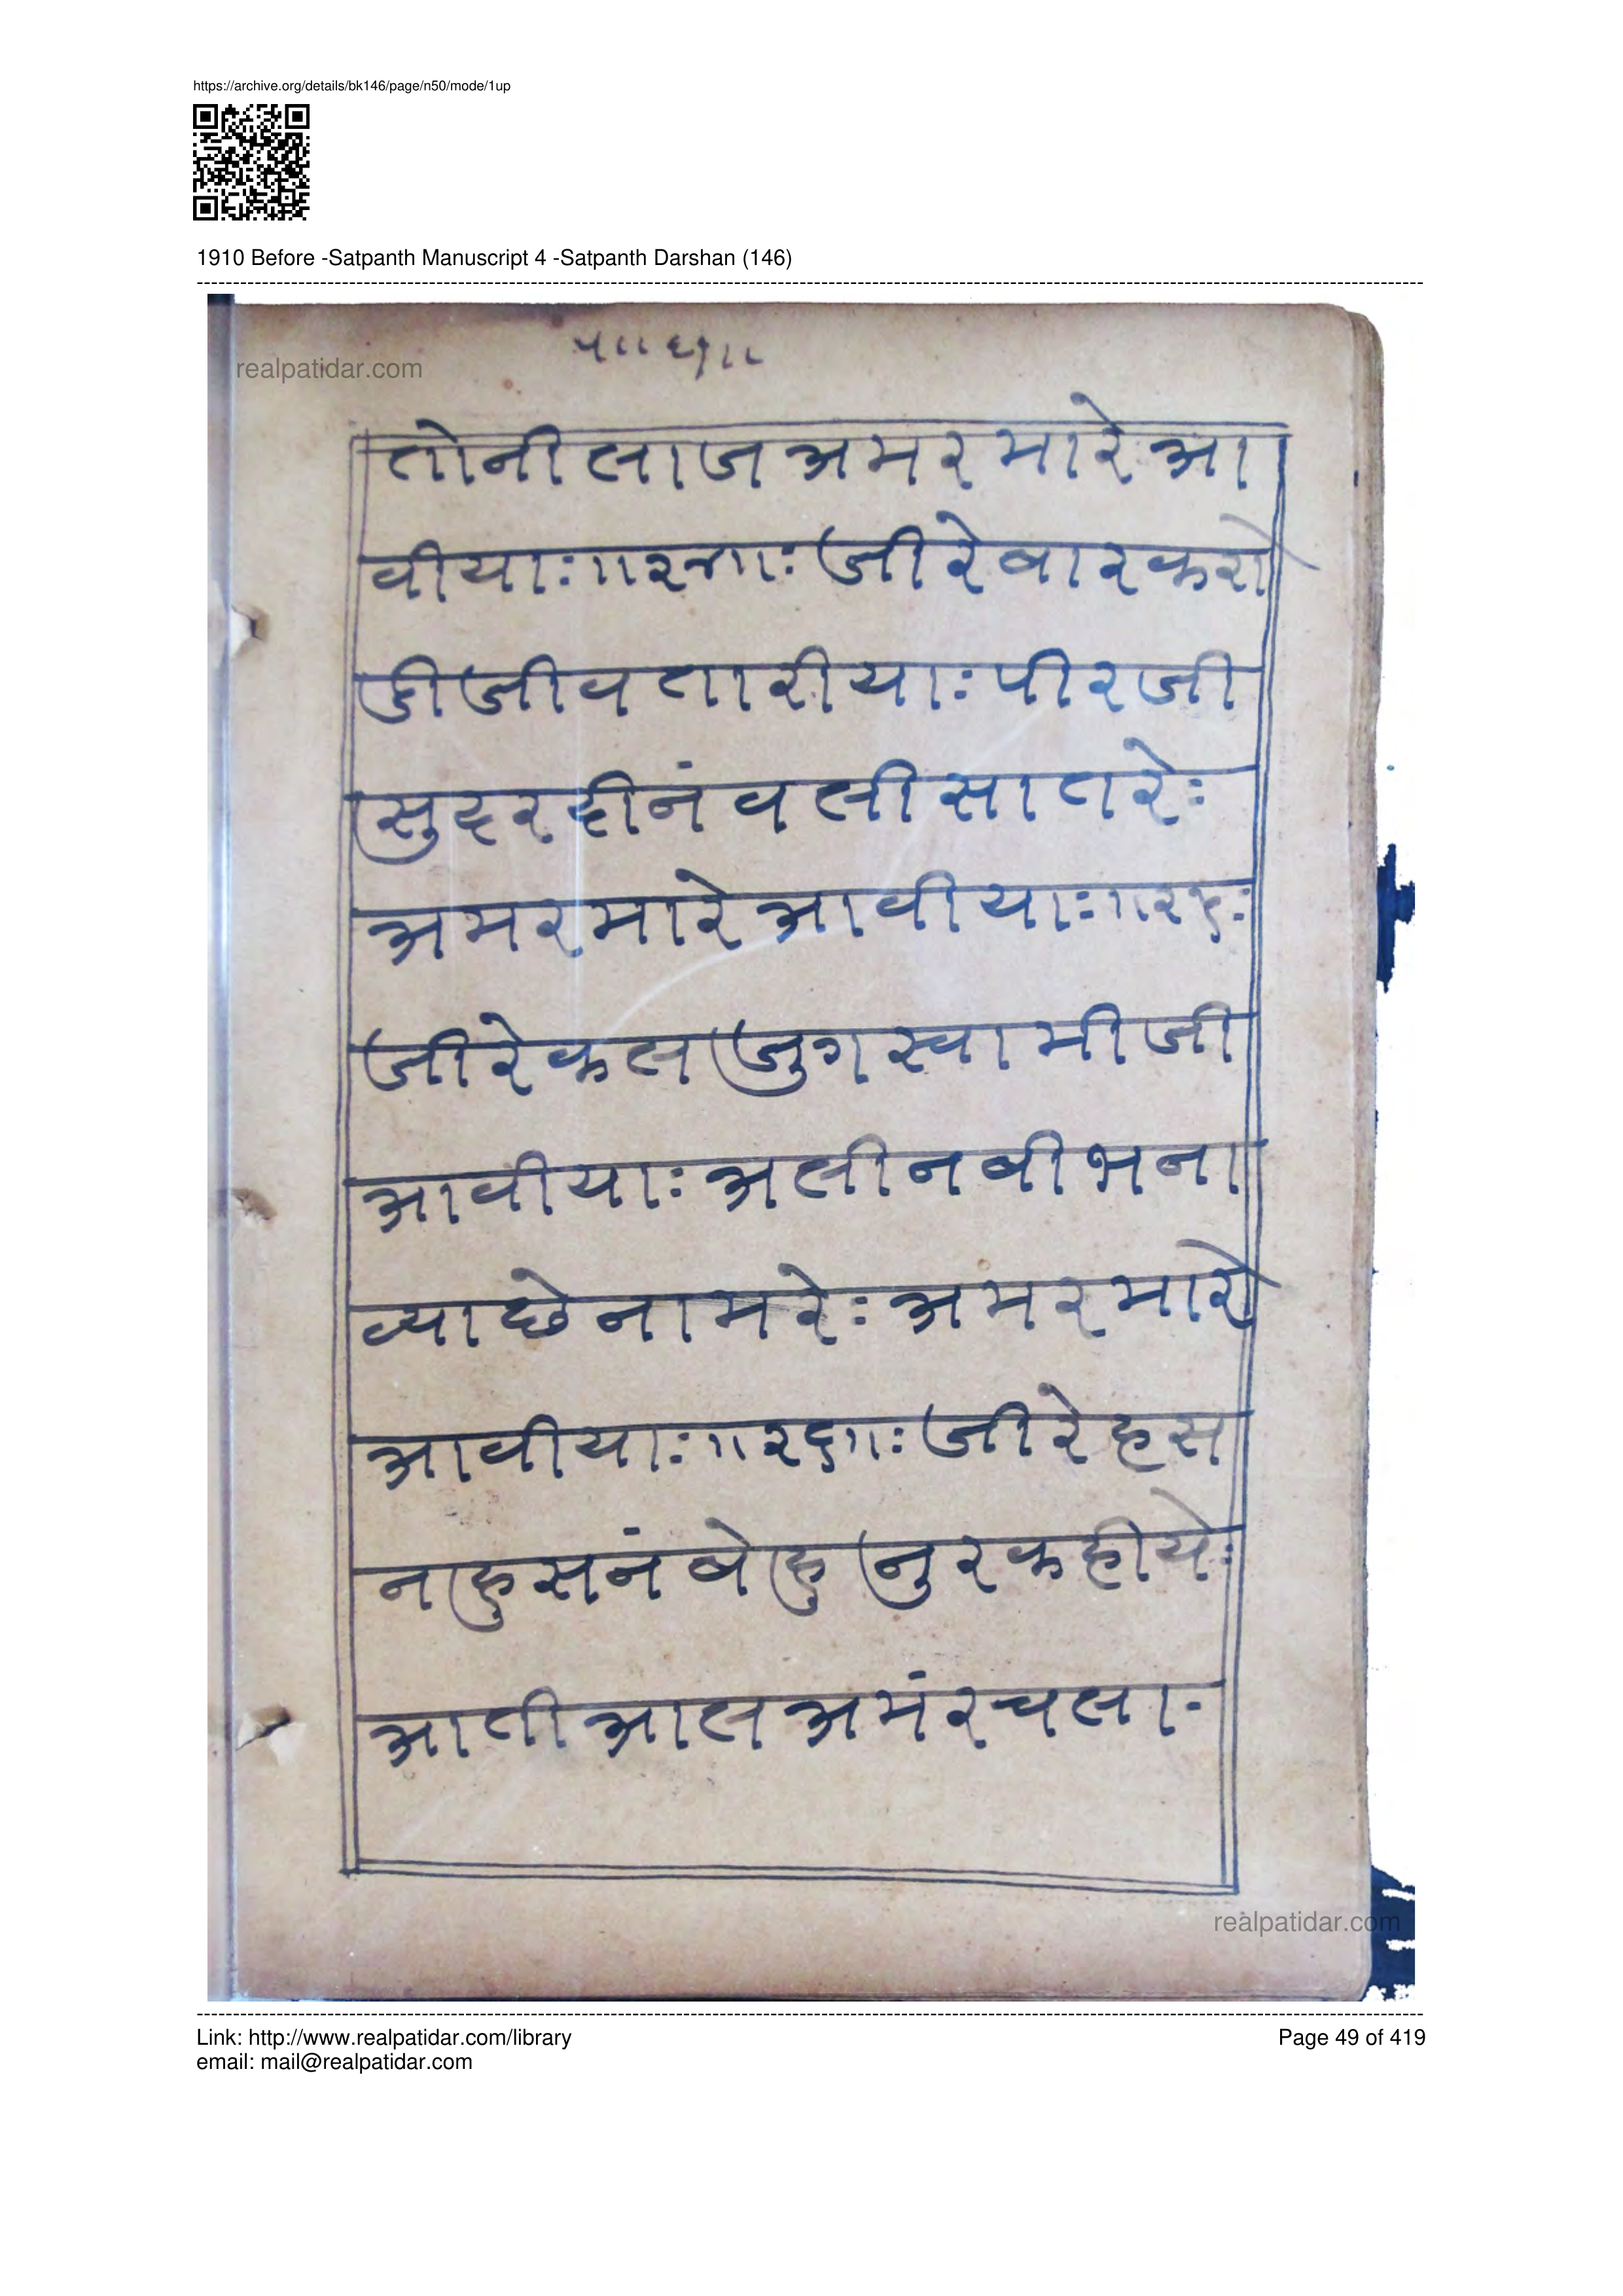 https://archive.org/details/bk146/page/n50/mode/1up
1910 Before -Satpanth Manuscript 4 -Satpanth Darshan (146)
realpatidar.com
तोनीलाज अमर मारे आ
वीयाः॥२४॥ः जीरे बार करो
डी जीव तारीयाः पीरजी
सुदरदीनं वली सातरेः
अमर मारे आवीयाः॥२५ः
जीरे कल जुग स्वामीजी
आवीयाः अली नबी भना
व्या छे नामरेः अमर मारे
आवीयाः॥२६॥ः जीरे हस
न हुसनं बेहु नुर कहीयेः
आती आल अमंर चलाः
realpatidar.com
Link: http://www.realpatidar.com/library
Page 49 of 419
email: mail@realpatidar.com